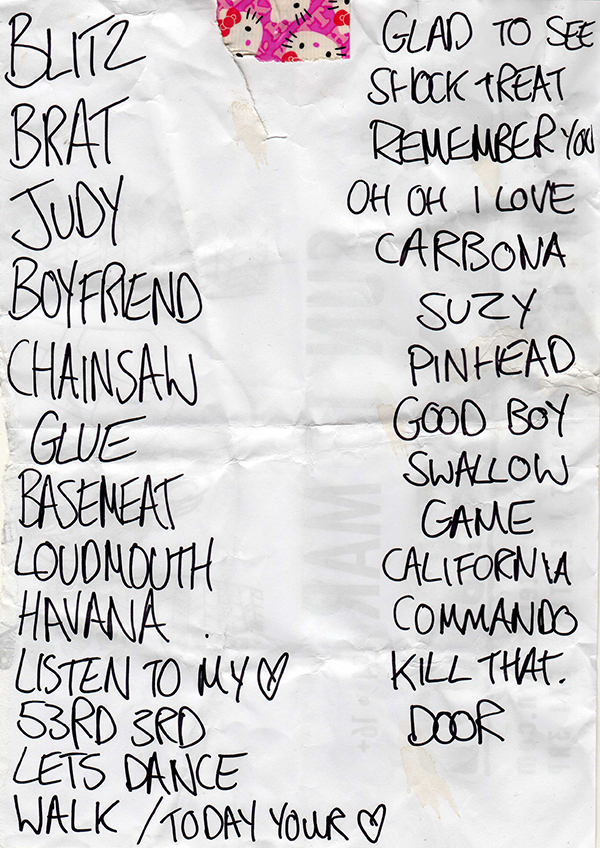 BLITZ
BRAT
JUDY
BOYFRIEND
CHAINSAW
GLUE
BASEMEAT
LOUDMOUTH
HAVANA
LISTEN TO MY ♡
53RD 3RD
LETS DANCE
WALK / TODAY YOUR ♡
GLAD TO SEE
SHOCK TREAT
REMEMBER YOU
OH OH I LOVE
CARBONA
SUZY
PINHEAD
GOOD BOY
SWALLOW
GAME
CALIFORNIA
COMMANDO
KILL THAT.
DOOR